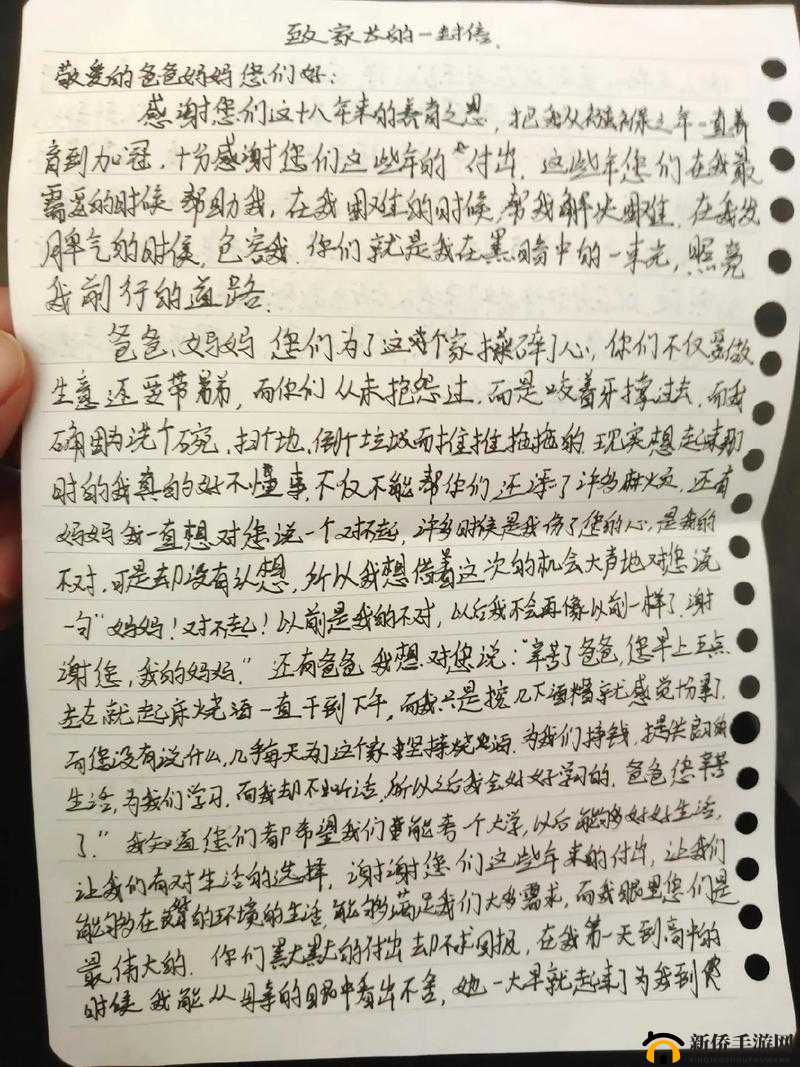 致家长的一封信.
敬爱的爸爸妈妈您们好:
感谢您们这十八年来的养育之恩, 把我从襁褓之年一直养
育到加冠, 十分感谢您们这些年的付出. 这些年您们在我最
需要的时候帮助我, 在我困难的时候帮我解决困难. 在我发
脾气的时候, 包容我. 你们就是我在黑暗中的一束光, 照亮
我前行的道路.
爸爸、妈妈 您们为了这个家操碎了心, 你们不仅要做
生意还要带弟弟, 而你们从未抱怨过, 而是咬着牙撑过去, 而我
确因为洗个碗, 扫个地, 倒个垃圾而推推拖拖的. 现实想起来那
时的我真的好不懂事, 不仅不能帮你们还添了许多麻烦, 还有
妈妈我一直想对您说一个对不起, 许多时候是我伤了您的心, 是我的
不对, 可是却没有认想, 所以我想借着这次的机会大声地对您说
一句“妈妈! 对不起! 以前是我的不对, 以后我不会再像以前一样了. 谢
谢您, 我的妈妈.” 还有爸爸我想对您说: “辛苦了爸爸, 您早上五点
左右就起床烧酒一直干到下午, 而我只是挖几下酒糟就感觉怕累了.
而您没有说什么, 几乎每天为了这个家坚持烧酒. 为我们挣钱,
生活, 为我们学习, 而我却不听话, 所以之后我会好好学习的. 爸爸您辛苦
了.” 我知道您们都希望我们能考一个大学, 以后能够好好生活,
让我们有对生活的选择, 谢谢您们这些年来的付出, 让我们
能够在的环境的生活, 能够满足我们大多需求, 而我眼里您们是
最伟大的. 你们默默的付出却不求回报, 在我第一天到高中的
时候我能从母亲的眼中看出不舍, 她一大早就起来了为我到
新侨手游网
XINQIAOSHOUYOUWANG